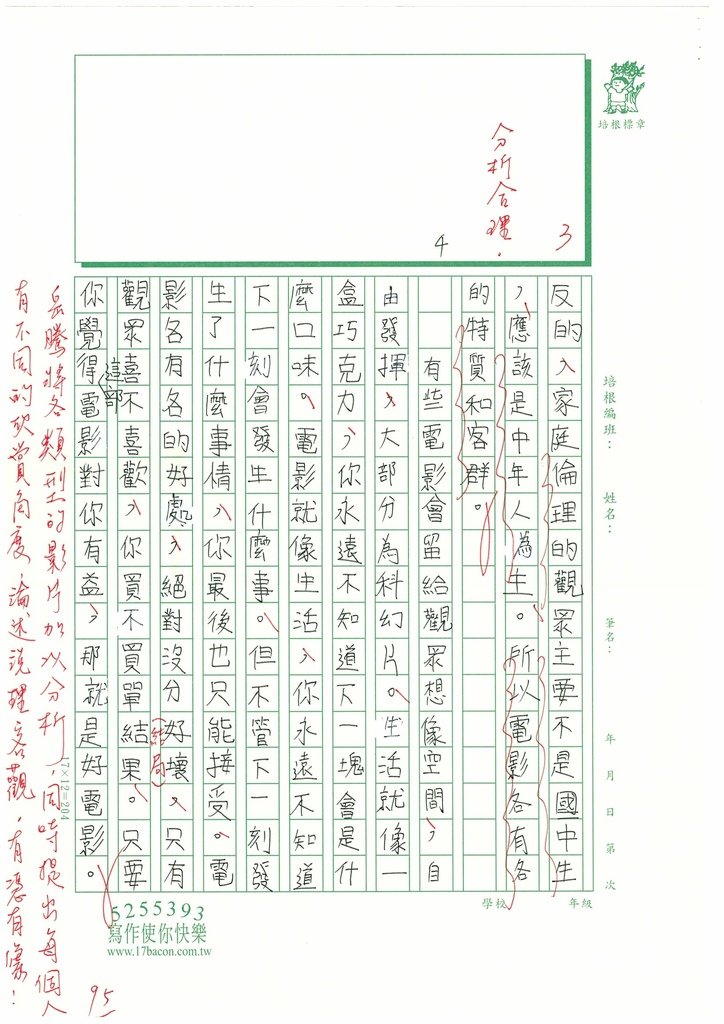 反的，家庭倫理的觀眾主要不是國中生
，應該是中年人為主。所以電影各有各
的特質和客群。
有些電影會留給觀眾想像空間，自
由發揮，大部分為科幻片。生活就像一
盒巧克力，你永遠不知道下一塊會是什
麼口味。電影就像生活，你永遠不知道
下一刻會發生什麼事。但不管下一刻發
生了什麼事情，你最後也只能接受。電
影各有各的好處，絕對沒分好壞，只有
(結局)
觀眾喜不喜歡，你買不買單結果。只要
這部
你覺得電影對你有益，那就是好電影。
分析合理。
3
4
岳騰將各類型的影片加以分析，同時提出每個人
有不同的欣賞角度，論述說理客觀，有憑有據！
95
培根標章
培根編班：
姓名：
筆名：
年 月 日 第 次
學校 年級
17×12=204
5255393
寫作使你快樂
www.17bacon.com.tw